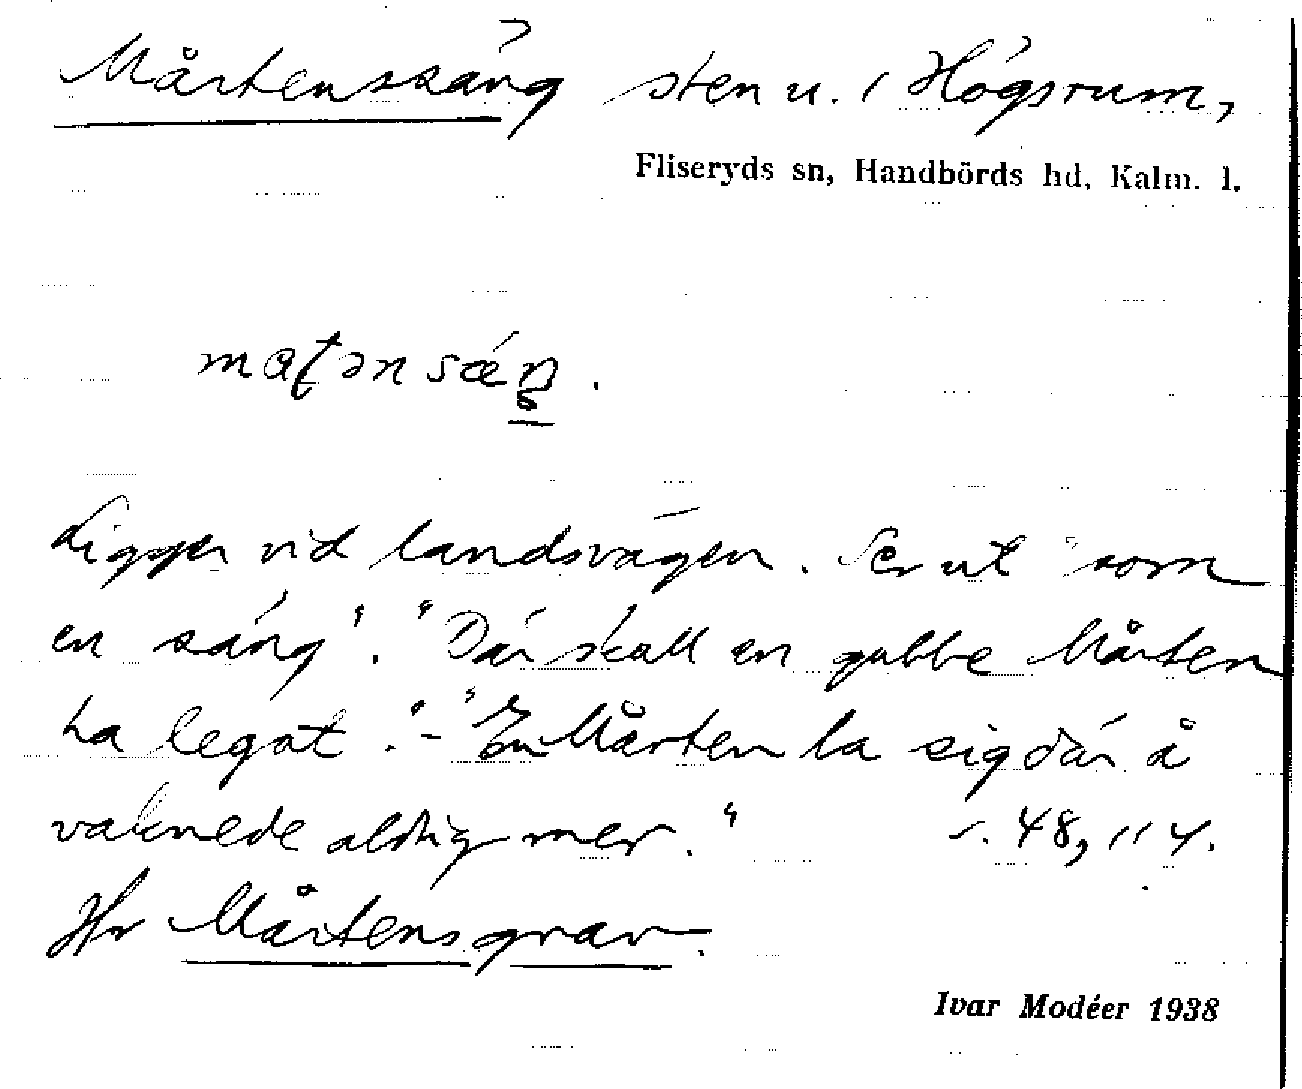 Mårtenssäng sten u. i Högsrum,
Fliseryds sn, Handbörds hd, Kalm. l.
Ligger vid landsvägen. Ser ut "som
en säng". "Där skall en gubbe Mårten
ha legat". - "En Mårten la sig där å
vaknede aldrig mer." s. 48, 114.
Jfr Mårtensgrav.
Ivar Modéer 1938